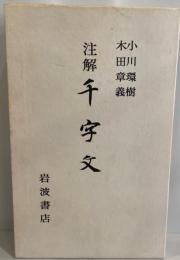 小川環樹
木田章義
注解
千字文
岩波書店